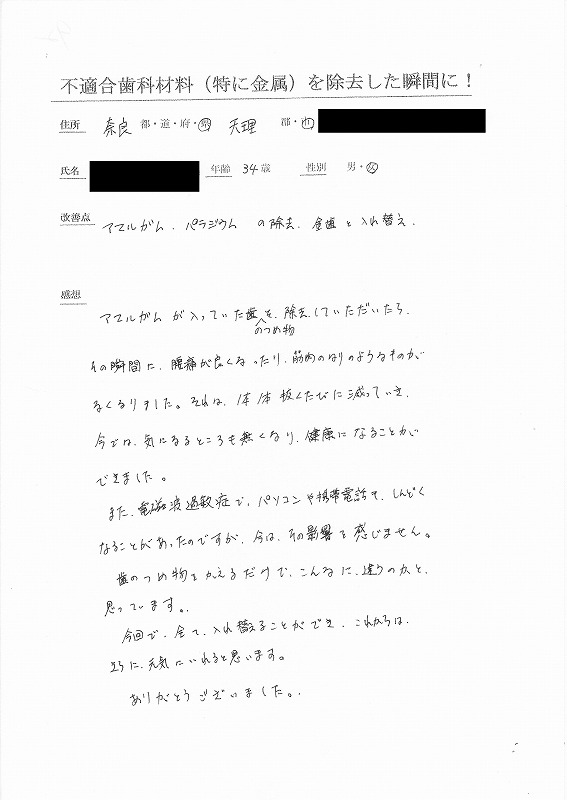 不適合歯科材料（特に金属）を除去した瞬間に！
住所 奈良 都・道・府・県 天理 郡・市
氏名 年齢 34歳 性別 男・女
改善点 アマルガム、パラジウム の除去、金歯と入れ替え、
感想
アマルガムが入っていた歯を、除去していただいたら、
のつめ物
その瞬間に、腰痛が良くなったり、筋肉のはりのようなものが
なくなりました。それは、1本1本抜くたびに減っていき、
今では、気になるところも無くなり、健康になることが
できました。
また、電磁波過敏症で、パソコンや携帯電話で、しんどく
なることがあったのですが、今は、その影響を感じません。
歯のつめ物をかえるだけで、こんなに、違うのかと、
思っています。
今回で、全て、入れ替えることができ、これからは、
さらに、元気にいれると思います。
ありがとうございました。